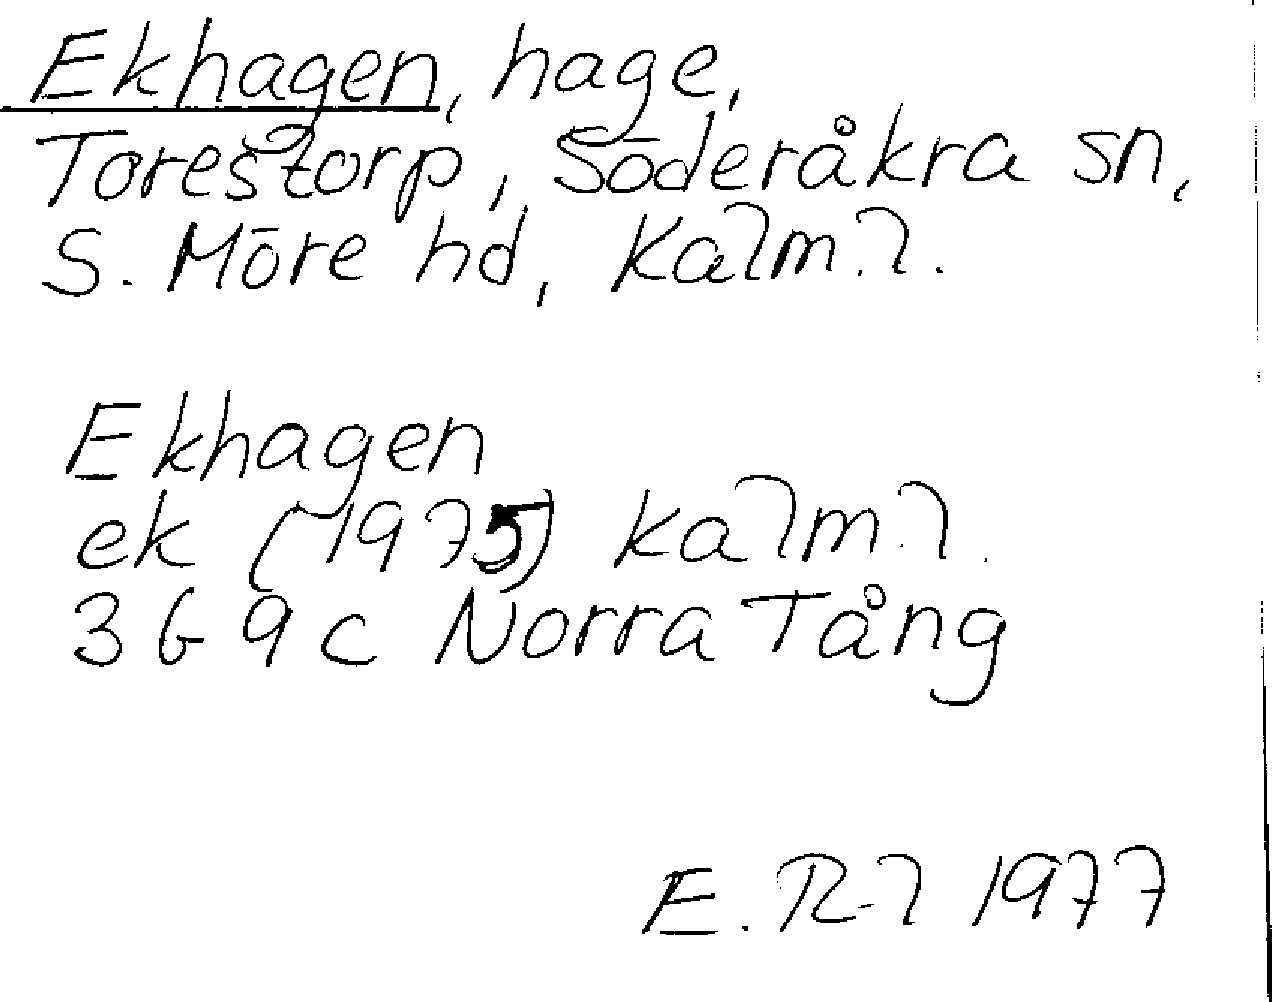 Ekhagen, hage,
Torestorp, Söderåkra sn,
S. Möre hd, Kalm. l.
Ekhagen
ek (1975) Kalm. l.
3G 9c Norra Tång
E. R-l 1977